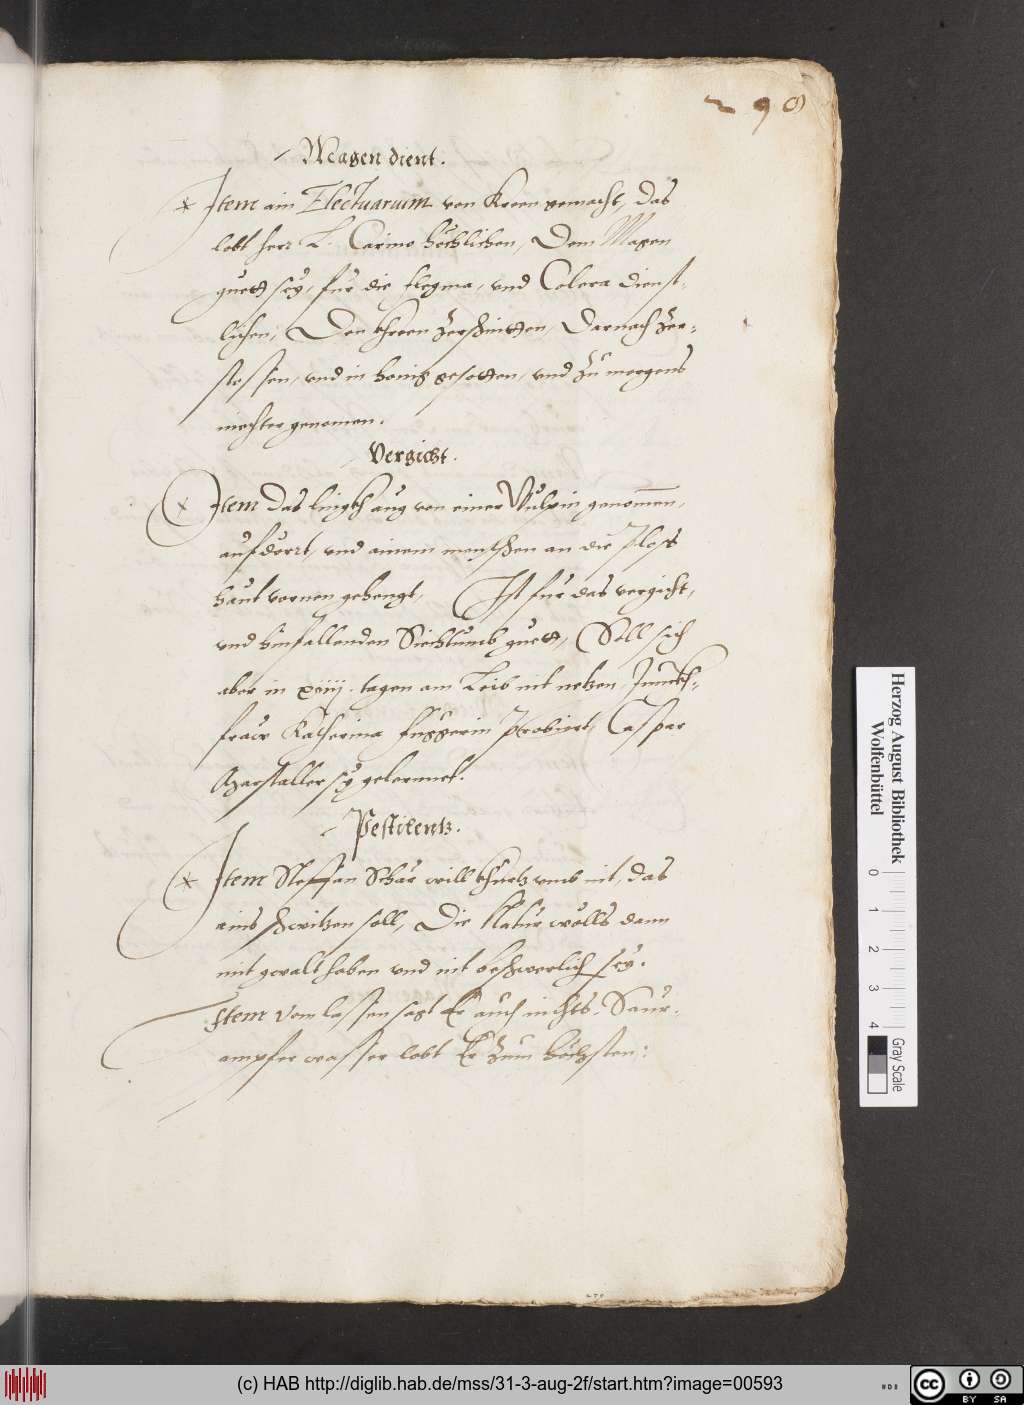 290
Magen dient.
* Item ain Electuarium von Kreen gemacht, das
lobt herr L. Carino höchlichen, Dem Magen
guett seÿ, für die flegma, und Colora dienst-
lichen, Den khreen zerschnitten, Darnach zer-
stossen, und in honig gesotten, und zu morgens
niechter genomen.
Vergicht.
* Item das lingkh aug von einer Wulpin genommen,
aufdörrt, und ainem menschen an die ploss
haut vornen gehengt, Ist für das vergicht,
und hinfallenden Siechtumb guett, Soll sich
aber in xiiij. tagen am Leib nit netzen, Junckh-
fraw Katherina fuggerin Probiert, Caspar
Marstaller sÿ gelernnet.
Pestilentz.
* Item Steffan Schär will khurtz umb nit, das
ains schwitzen soll, Die Natur wölls dann
mit gwalt haben und nit beschwerlich seÿ.
Item vom lassen sagt Er auch nichts. Saur-
ampfer wasser lobt Er zum höchsten:
Herzog August Bibliothek
Wolfenbüttel
0 1 2 3 4
Gray Scale
(c) HAB http://diglib.hab.de/mss/31-3-aug-2f/start.htm?image=00593
cc BY SA